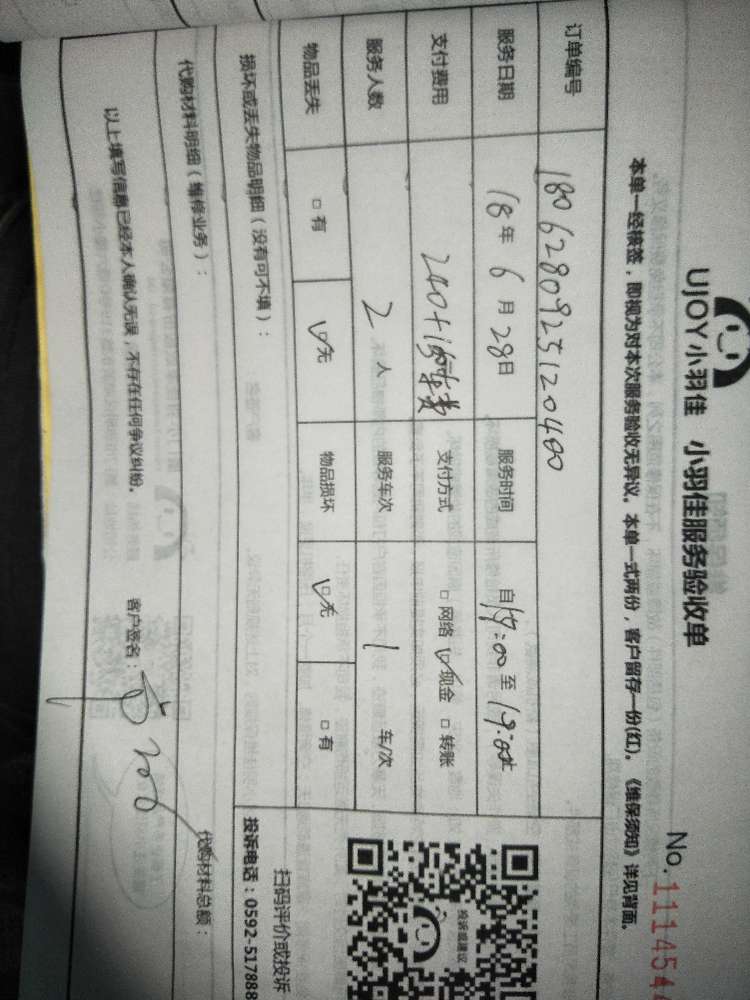 UJOY小羽佳 小羽佳服务验收单
No. 111454
本单一经核签，即视为对本次服务验收无异议。本单一式两份，客户留存一份(红)。《维保须知》详见背面。
订单编号 1806280925120400
服务日期 18年 6月 28日 服务时间 自 17:00 至 19:00止
支付费用 240+15元车费 支付方式 □ 网络 ☑ 现金 □ 转账
服务人数 2 人 服务车次 1 车/次
物品丢失 □ 有 ☑ 无 物品损坏 ☑ 无 □ 有
投诉或建议
扫码评价或投诉
投诉电话：0592-517888
损坏或丢失物品明细（没有可不填）：
代购材料明细（维修业务）：
代购材料总额：
以上填写信息已经本人确认无误，不存在任何争议纠纷。 客户签名：